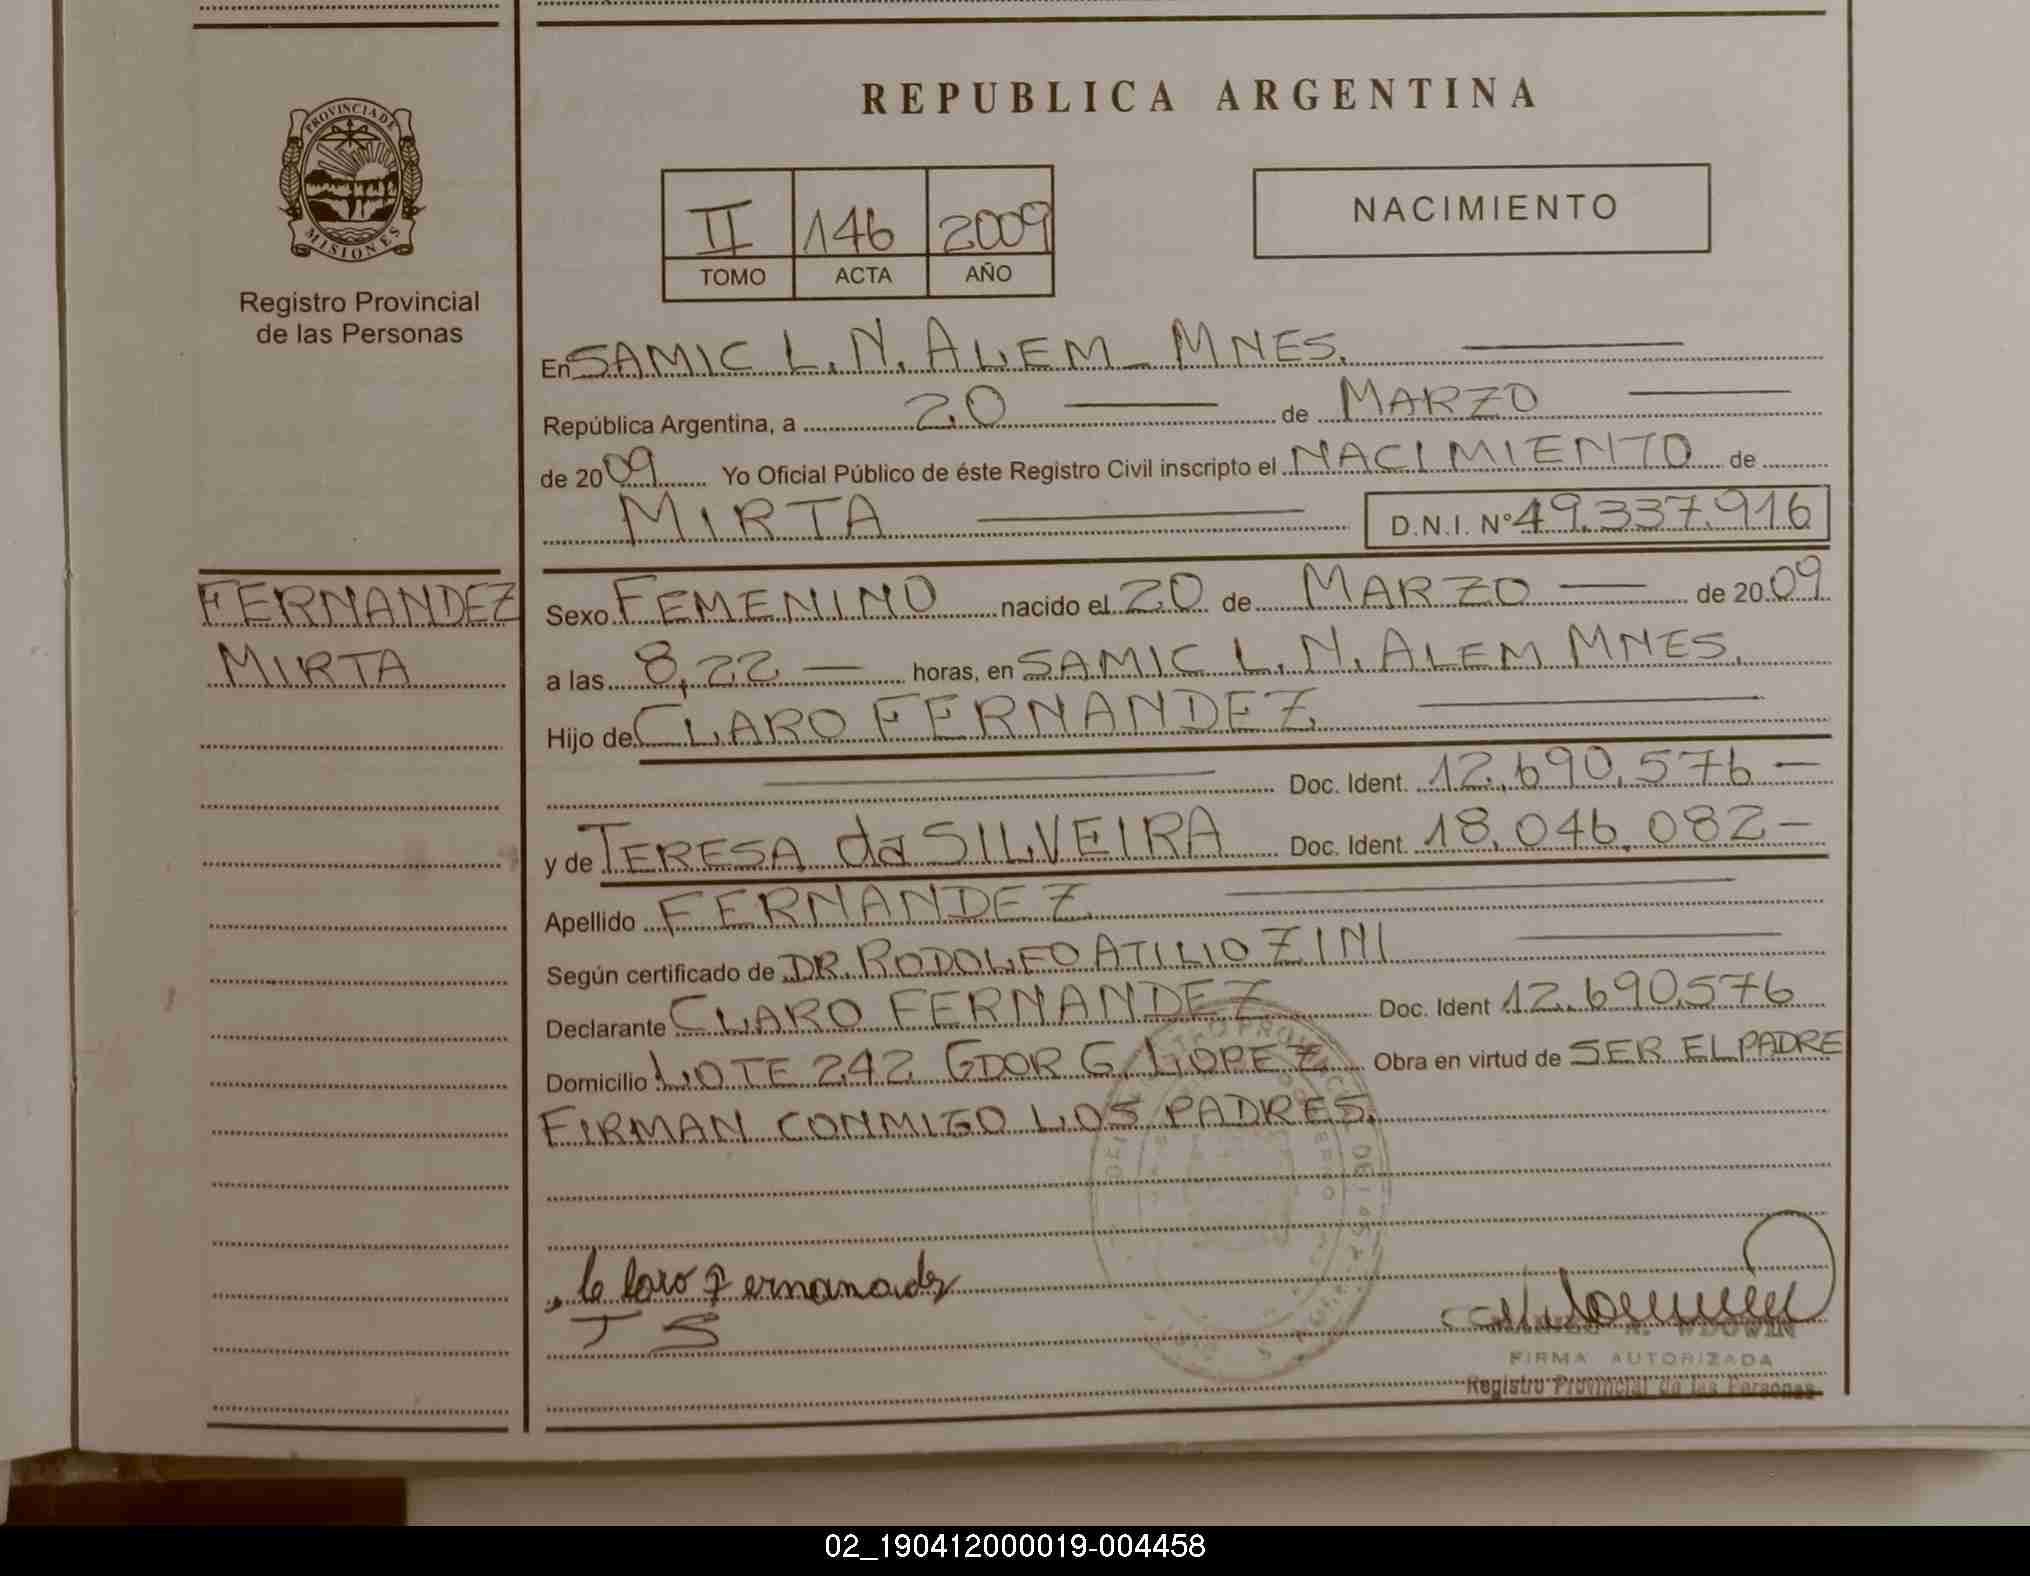 REPUBLICA ARGENTINA
PROVINCIA DE MISIONES
Registro Provincial
de las Personas
II 146 2009
TOMO ACTA AÑO
NACIMIENTO
En SAMIC L.N. ALEM - MNES.
República Argentina, a 20 de MARZO
de 2009 Yo Oficial Público de éste Registro Civil inscripto el NACIMIENTO de
MIRTA D.N.I. Nº 49.337.916
FERNANDEZ
MIRTA
Sexo FEMENINO nacido el 20 de MARZO de 2009
a las 8,22 horas, en SAMIC L.N. ALEM MNES.
Hijo de CLARO FERNANDEZ
Doc. Ident. 12.690.576
y de TERESA da SILVEIRA Doc. Ident. 18.046.082
Apellido FERNANDEZ
Según certificado de DR. RODOLFO ATILIO ZINI
Declarante CLARO FERNANDEZ Doc. Ident 12.690.576
Domicilio LOTE 242 GDOR G. LOPEZ Obra en virtud de SER EL PADRE
FIRMAN CONMIGO LOS PADRES.
Claro Fernanadez
T S
WDOWIN
FIRMA AUTORIZADA
Registro Provincial de las Personas
02_190412000019-004458